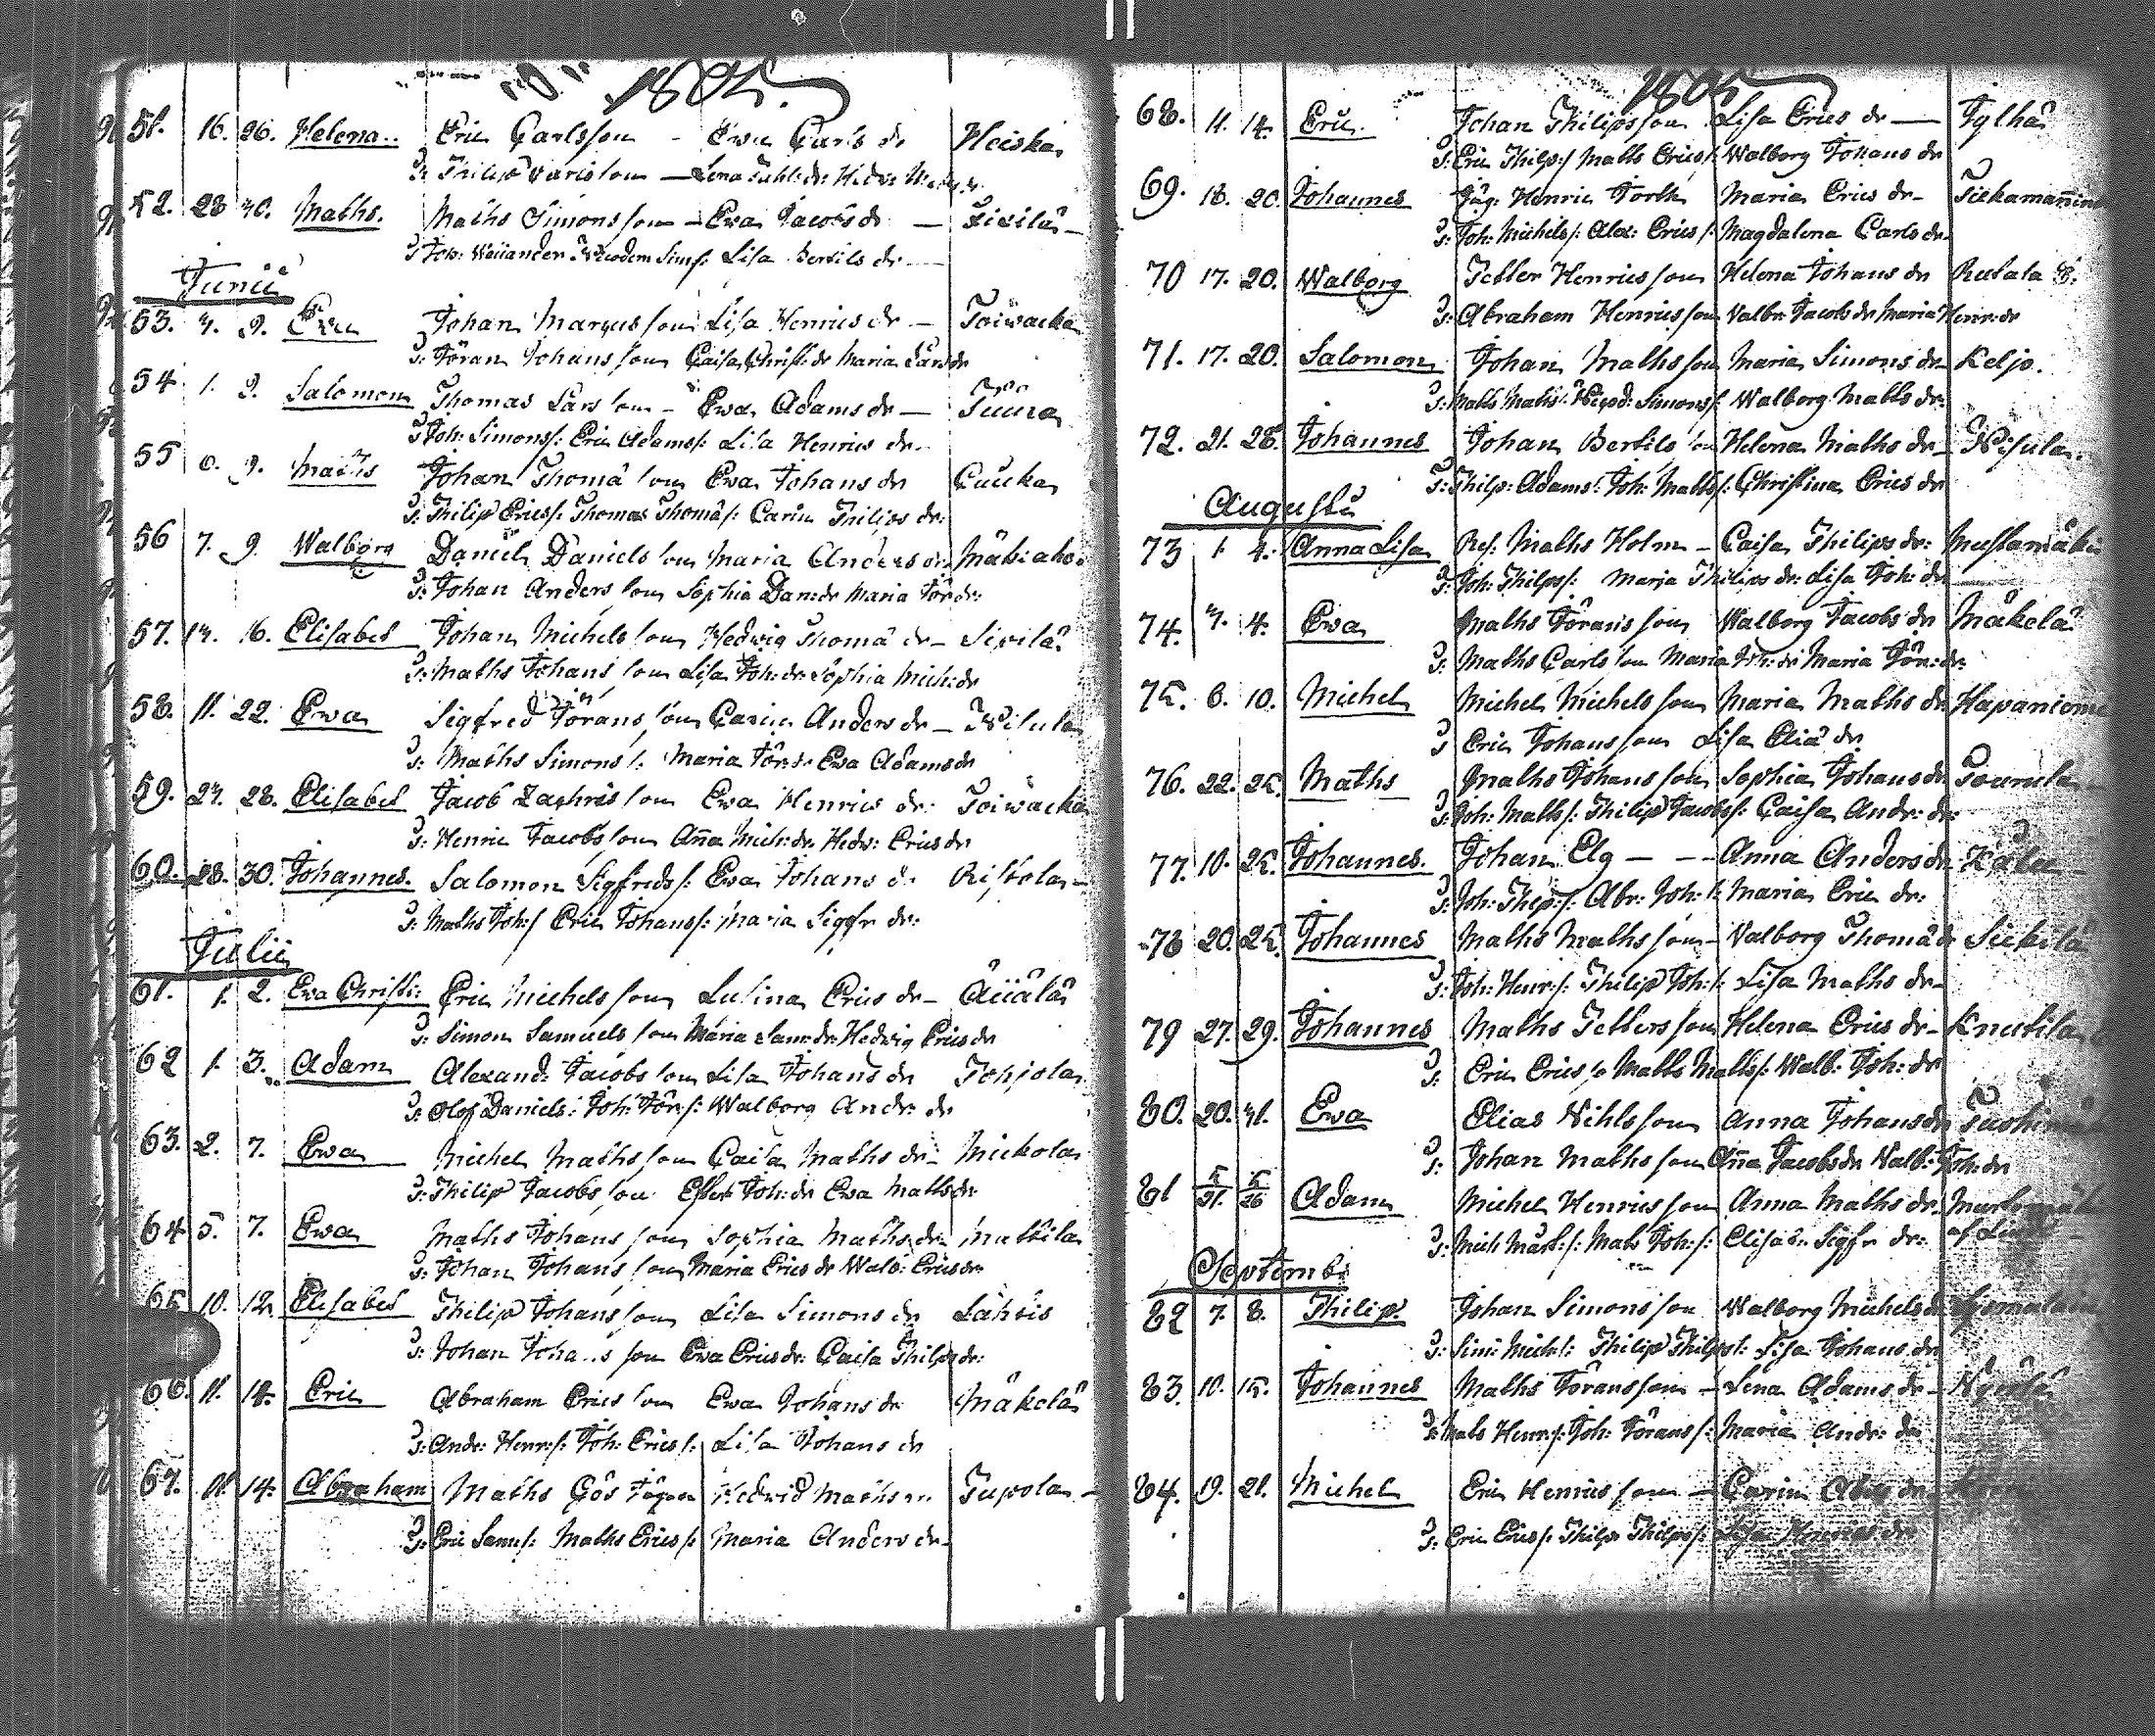 1805.
51. 16. 26. Helena.. Eric Carlsson - Ewa Carls dr Heiska
52. 28 30. Maths. Maths Simonsson - Ewa Jacobs dr -
Lisa Bertils dr
Junii
53. 3. 9. Ewa Johan Marcusson Lisa Henrics dr - Toiwacka
T: Jöran Johansson Caisa Christ: dr Maria Lars dr
54 1. 9. Salomon Thomas Larsson - Ewa Adams dr - Tuura
T: Joh: Simons/: Eric Adams/: Lisa Henrics dr
55 6. 9. Maths Johan Thomæson Ewa Johans dr Cuuka
T: Philip Erics/: Thomas Thomæ/: Carin Philips dr:
56 7. 9. Walborg Daniel Danielsson Maria Anders dr Mäkiaho
T: Johan Andersson Sophia Dan: dr Maria Jör: dr:
57. 13. 16. Elisabet Johan Michelsson Hedwig Thomæ dr - Sipilä
T: Maths Johansson Lisa Joh: dr Sophia Mich: dr
58. 11. 22. Ewa Sigfred Jöransson Carin Anders dr -
T: Maths Simons/: Maria Jör: dr Ewa Adams dr
59. 23. 28. Elisabet Jacob Zachrisson Ewa Henrics dr: Toiwacka
T: Henric Jacobsson Aña Mich: dr Hedw: Erics dr
60. 28. 30. Johannes. Salomon Sigfreds/: Ewa Johans dr Ristola
T: Maths Joh:/ Eric Johans/: Maria Sigfr dr:
Julii
61. 1. 2. Ewa Christi: Eric Michelsson Lusina Erics dr - Äijälä
T: Simon Samuelsson Maria Sam: dr Hedwig Erics dr
62 1. 3. Adam Alexand: Jacobsson Lisa Johans dr Pohjola
T: Olof Daniels: Joh: Jör:/: Walborg Andr: dr
63. 2. 7. Ewa Michel Mathsson Caisa Maths dr - Mickola
T: Philip Jacobsson Esther Joh: dr Ewa Maths dr
64 5. 7. Ewa Maths Johansson Sophia Maths dr Mattila
T: Johan Johansson Maria Erics dr Walb: Erics dr
65 10. 12. Elisabet Philip Johansson Lisa Simons dr Lahtis
T: Johan Johansson Ewa Erics dr: Caisa Philips dr:
66. 11. 14. Eric Abraham Ericsson Ewa Johans dr Mäkelä
T: Andr: Henr:/: Joh: Erics/: Lisa Johans dr
67. 11. 14. Abraham Maths Gös Hedwig Maths dr Jupola -
T: Eric Sam:/: Maths Erics/: Maria Anders dr
1805
68. 11. 14. Eric Johan Philipsson Lisa Erics dr -
T: Eric Philp:/ Maths Erics/: Walborg Johans dr
69. 18. 20. Johannes Jäg: Henric Maria Erics dr -
T: Joh: Michels/: Alex: Erics/: Magdalena Carls dr
70 17. 20. Walborg Petter Henricsson Helena Johans dr
T: Abraham Henricsson Valbr: Jacobs dr Maria Henr: dr
71. 17. 20. Salomon Johan Mathsson Maria Simons dr - Keljo.
Walborg Maths dr:
72. 21. 28. Johannes Johan Bertilsson Helena Maths dr -
T: Philp: Adams: Joh: Maths/: Christina Erics dr
Augusti
73 1. 4. Anna Lisa Ref: Maths Holm - Caisa Philips dr: Mustamäki
T: Joh: Philps/: Maria Philips dr: Lisa Joh: dr
74. 3. 4. Ewa Maths Jöransson Walborg Jacobs dr Mäkelä
T: Maths Carlsson Maria Joh: dr Maria Jör: dr:
75. 6. 10. Michel Michel Michelsson Maria Maths dr Hapaniemi
T: Eric Johansson Lisa Eliæ dr
76. 22. 25. Maths Maths Johansson Sophia Johans dr Tourula
T: Joh: Maths/: Philip Jacobs/: Caisa Andr: dr:
77. 10. 25. Johannes. Johan Elg - - - Anna Anders dr
T: Joh: Abr: Joh:/: Maria Eric dr:
78 20. 25. Johannes Maths Mathsson - Valborg Thomæ dr
T: Joh: Henr:/: Philip Joh:/: Lisa Maths dr -
79 27. 29. Johannes Maths Pettersson Helena Erics dr - Knutila
T: Eric Erics/: Maths Maths/: Walb: Joh: dr
80. 20. 31. Ewa Elias Nihlsson Anna Johans dr
T: Johan Mathsson Aña Jacobs dr Walb: Joh: dr
81 5/21. 5/26 Adam Michel Henricsson Anna Maths dr.
T: Mich Mart:/: Mats Joh:/: Sigfr dr:
Septemb:
82 7. 8. Philip. Johan Simonsson Walborg Michels dr
T: Sim: Mich/: Philip Philips/: Lisa Johans dr
83. 10. 15. Johannes Maths Jöransson - Lena Adams dr -
T: Mats Henr:/: Joh: Jörans/: Maria Andr: dr
84. 19. 21. Michel Eric Henricsson - Carin
T: Eric Erics/: Philp: Philps/: Lisa Henrics dr